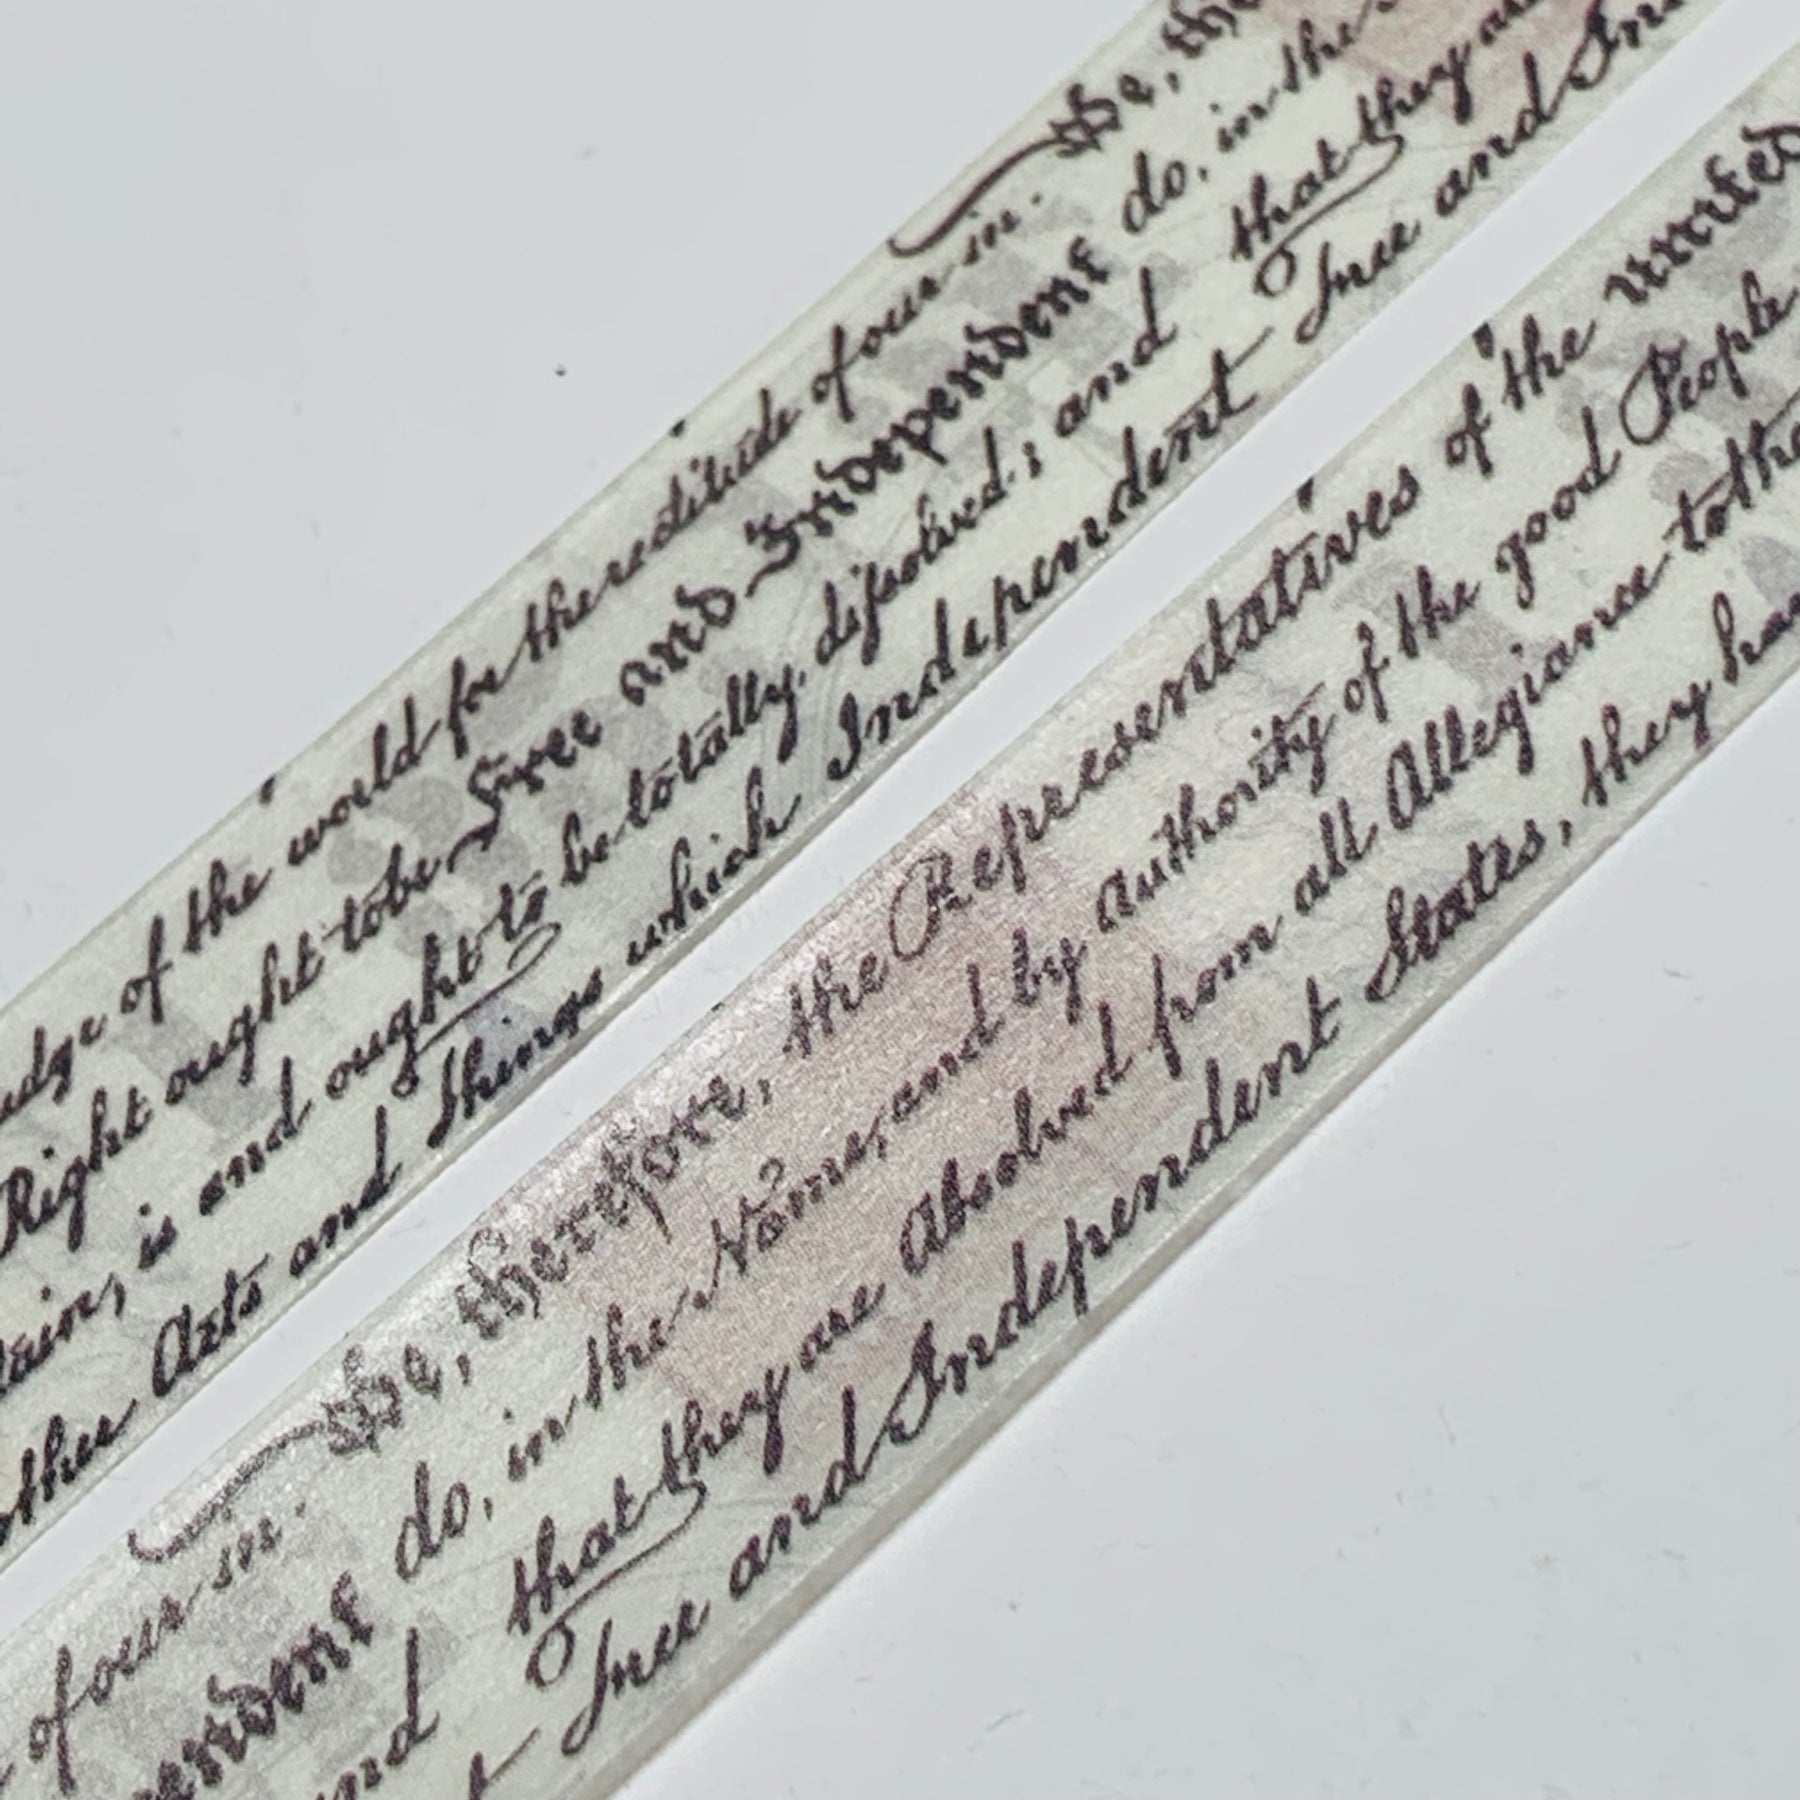 We, the
do, in the
that they are
Free and Ind
udge of the world for the rectitude of our in.
Right ought to be Free and Independent
tain, is and ought to be totally dissolved; and
other Acts and Things which Independent
We, therefore, the Representatives of the united
do, in the Name, and by Authority of the good People
that they are Absolved from all Allegiance to the
Free and Independent States, they hav
of our in.
endent
and
t